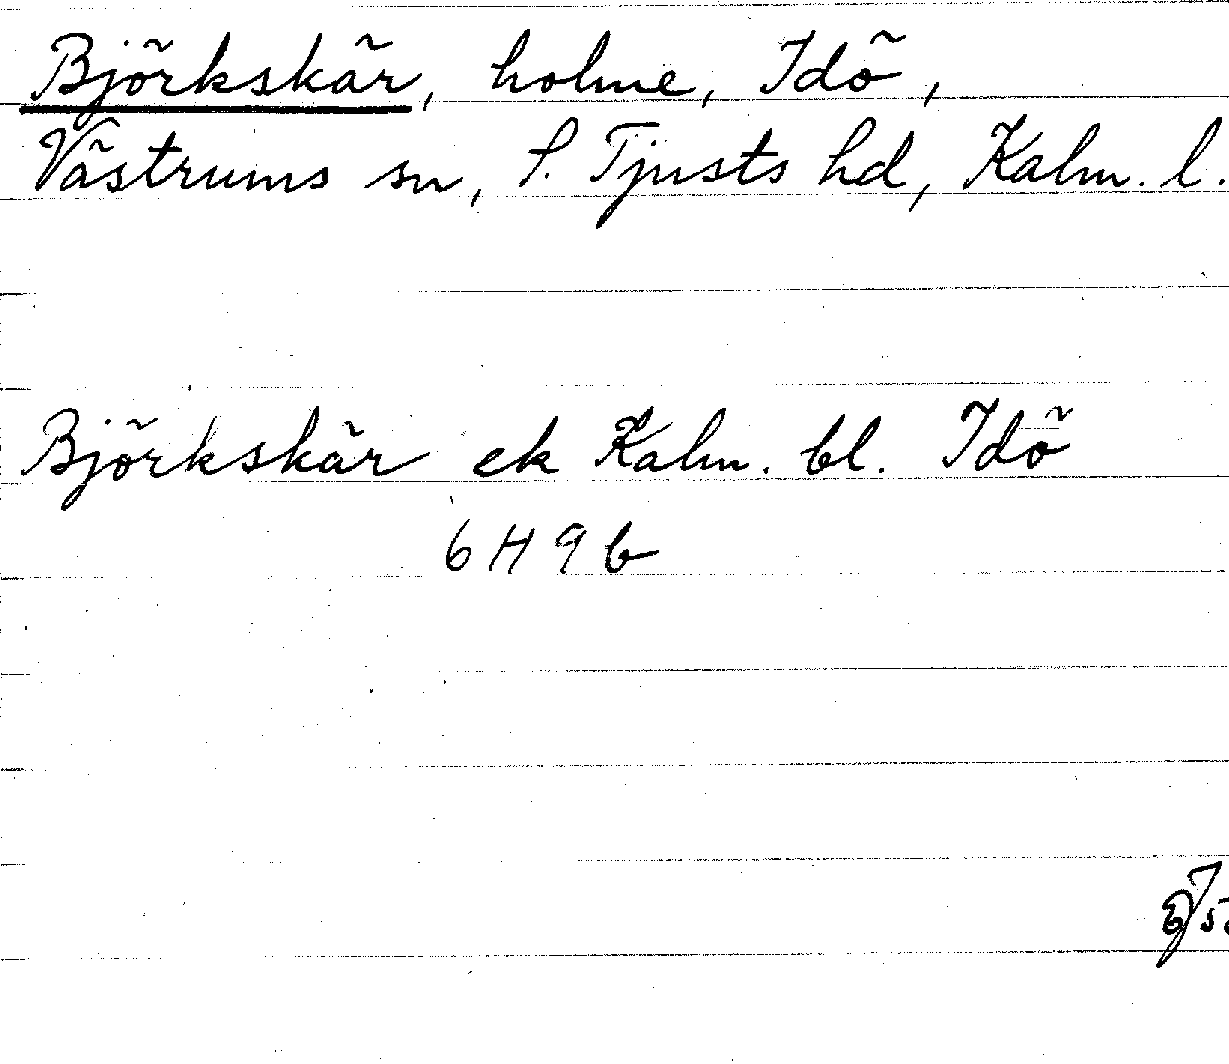 Björkskär, holme, Idö,
Västrums sn, S. Tjusts hd, Kalm. l.
Björkskär ek Kalm. bl. Idö
6H9b